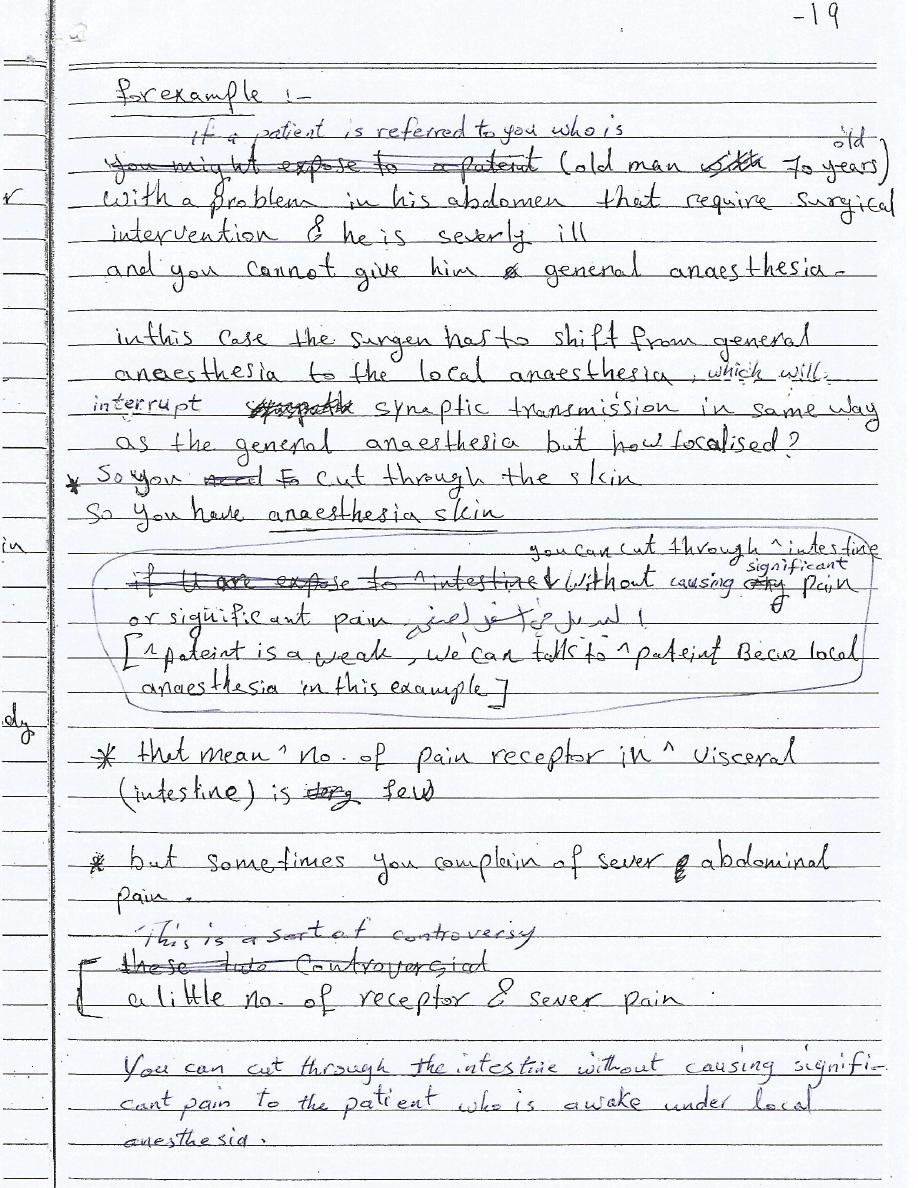 -19
for example :-
If a patient is referred to you who is
old
you might expose to a patent (old man with 70 years)
with a problem in his abdomen that require surgical
intervention & he is severly ill
and you cannot give him a general anaesthesia.
inthis case the surgen has to shift from general
anaesthesia to the local anaesthesia, which will
interrupt synaptic transmission in same way
as the general anaesthesia but how localised?
* So you need to cut through the skin
So you have anaesthesia skin
in
you can cut through ^ intestine
significant
if U are expose to ^ intestine & without causing any pain
or significant pain
[^ pateint is a weak, we can talks to ^ pateint Becuz local
anaesthesia in this example]
dy
* that mean ^ no. of pain receptor in ^ visceral
(intestine) is very few
* but sometimes you complain of sever abdominal
pain.
This is a sort of controversy
[ these two Controversial
a little no. of receptor & sever pain
You can cut through the intestine without causing signifi-
cant pain to the patient who is awake under local
anesthesia.